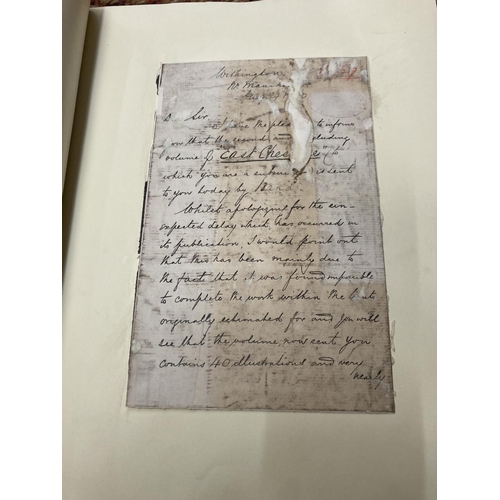 Withington
Nr Manche
D Sir
I have the pleas to inform
you that the second and concluding
volume of "East Ches
which you are a subscri is sent
to you today by
Whilst apologizing for the un-
expected delay which has occurred in
its publication, I would point out
that this has been mainly due to
the fact that it was found impossible
to complete the work within the limits
originally estimated for and you will
see that the volume now sent you
contains 40 illustrations and very
nearly